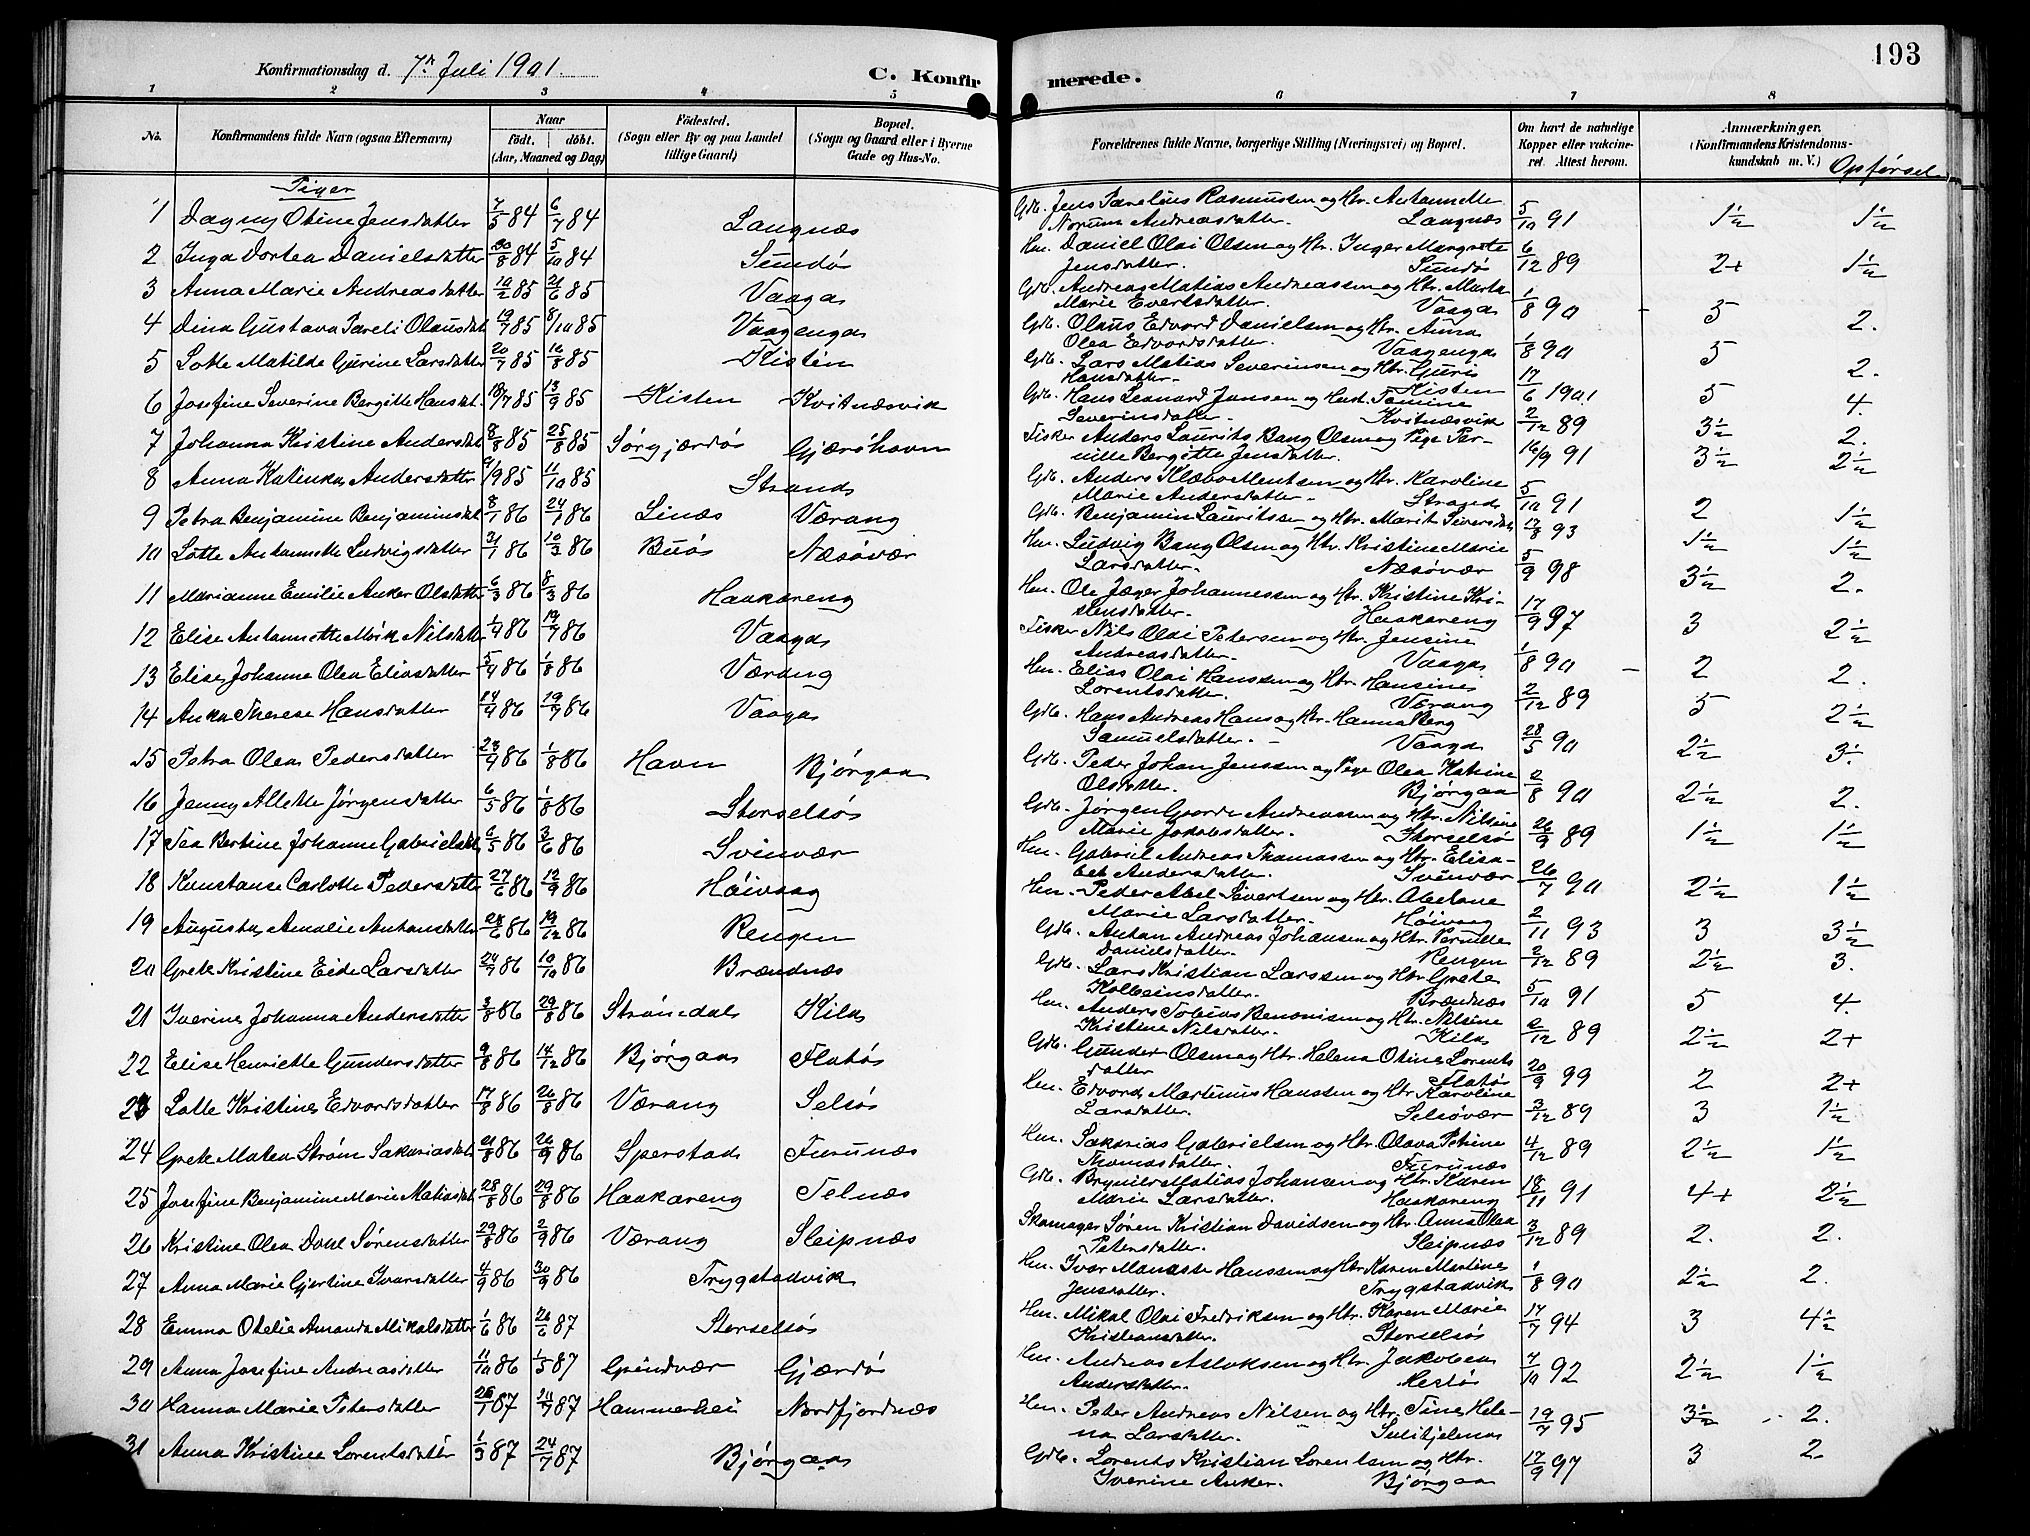 193
Konfirmationsdag d. 7de Juli 1901.
C. Konfirmerede.
1 2 3 4 5 6 7 8
No.
Konfirmandens fulde Navn (ogsaa Efternavn)
Naar
født. døbt.
(Aar, Maaned og Dag)
Fødested.
(Sogn eller By og paa Landet
tillige Gaard)
Bopæl.
(Sogn og Gaard eller i Byerne
Gade og Hus-No.
Forældrenes fulde Navne, borgerlige Stilling (Næringsvei) og Bopæl.
Om havt de naturlige
Kopper eller vakcine-
ret. Attest herom.
Anmærkninger.
(Konfirmandens Kristendoms-
kundskab m. V.) Opførsel
Piger
1 Dagny Otine Jensdatter 7/5 84 6/7 84 Langnæs
Gdb. Jens Parelius Rasmussen og Htr. Antonette
Norum Andreasdatter. Langnæs 5/10 91 1½ 1½
2 Inga Dortea Danielsdatter 30/8 84 5/10 84 Sundø
Hm. Daniel Olai Olsen og Htr. Inger Margrete
Jensdatter. Sundø 6/12 89 2+ 1½
3 Anna Marie Andreasdatter 10/2 85 21/6 85 Vaaga
Gdb. Andreas Matias Andreassen og Htr. Marta
Marie Evertsdatter. Vaaga 1/8 90 - 5 2.
4 Dina Gustava Pareli Olausdat. 19/7 85 8/10 85 Vaagenga
Gdb. Olaus Edvard Danielsen og Htr. Anna
Olea Edvardsdatter. Vaagenga 1/8 90 5 2.
5 Lotte Matilde Gurine Larsdatter 20/7 85 16/8 85 Kisten
Gdb. Lars Matias Severinsen og Htr. Guris
Hansdatter. Kisten 17/6 1901 5 4.
6 Josefine Severine Bergitte Hansdt. 18/7 85 13/9 85 Kisten Kvitnæsvik
Gdb. Hans Leonard Jansen og Hust. Tomine
Severinsdatter. Kvitnæsvik 2/12 89 3½ 2.
7 Johanna Kristine Andersdt. 8/8 85 25/8 85 Sørgjærdø Gjærshavn
Fisker Anders Laurits Bang Olsen og Pige Per-
nille Bergitte Jensdatter. 16/9 91 3½ 2½
8 Anna Katinka Andersdatter 9/9 85 11/10 85 Strand
Gdb. Anders Klæbo Mentsen og Htr. Karoline
Marie Andersdatter. Strand 5/10 91 2 1½
9 Petra Benjamine Benjaminsdat. 8/1 86 24/1 86 Linæs Værang
Gdb. Benjamin Lauritssen og Htr. Marit Siversdat. 17/8 93 1½ 1½
10 Lotte Antonette Ludvigsdatter 31/1 86 10/3 86 Buø Næsøvær
Hm. Ludvig Bang Olsen og Htr. Kristine Marie
Larsdatter. Næsøvær 5/9 98 3½ 2.
11 Marianne Emilie Anker Olsdatter 6/3 86 8/3 86 Haakareng
Hm. Ole Jæger Johannessen og Htr. Kristine Kri-
stensdatter. Haakareng 17/9 97 3 2½
12 Elise Antonette Mørk Nilsdatter 1/4 86 19/7 86 Vaaga
Fisker Nils Olai Petersen og Htr. Jensine
Andreasdatter. Vaaga 1/8 90 - 2 2.
13 Elise Johanne Olea Eliasdatter 5/4 86 1/8 86 Værang
Hm. Elias Olai Hanssen og Htr. Hansine
Lorentsdatter. Værang 2/12 89 5 2½
14 Anka Therese Hansdatter 14/4 86 19/7 86 Vaaga
Gdb. Hans Andreas Hans og Htr. Hanna Berg
Samuelsdatter. - Vaaga 28/5 90 2½ 3.
15 Petra Olea Pedersdatter 23/4 86 1/8 86 Havn Bjørgaa
Gdb. Peder Johan Jenssen og Pige Olea Katrine
Olsdatter. Bjørgaa 2/8 90 2½ 2.
16 Jenny Alette Jørgensdatter 6/5 86 1/8 86 Storselsø
Gdb. Jørgen Gaarde Andreassen og Htr. Nilsine
Marie Jakobsdatter. Storselsø 26/9 89 1½ 1½
17 Tea Bertine Johanne Gabrielsdat. 6/5 86 3/6 86 Svinvær
Hm. Gabriel Andreas Thomassen og Htr. Elisa-
bet Andersdatter. Svinvær 26/7 90 2½ 1½
18 Kunstanse Carlotte Pedersdatter 27/6 86 12/9 86 Høivaag
Hm. Peder Abel Sivertsen og Htr. Abelone
Marie Larsdatter. Høivaag 2/11 93 3 3½
19 Augusta Amalie Antonsdatter 28/6 86 19/12 86 Rengen
Gdb. Anton Andreas Johansen og Htr. Pernille
Danielsdatter. Rengen 2/12 89 2½ 3.
20 Grete Kristine Eide Larsdatter 24/7 86 10/10 86 Brændnæs
Gdb. Lars Kristian Larssen og Htr. Grete
Kolbeinsdatter. Brændnæs 5/10 91 5 4.
21 Iverine Johanna Andersdatter 3/8 86 29/8 86 Strømdal Kila
Hm. Anders Tobias Benonisen og Htr. Nilsine
Kristine Nilsdatter. Kila 2/12 89 2½ 2+
22 Elise Henriette Gundersdatter 9/8 86 14/12 86 Bjørgaa Flatø
Gdb. Gunder Olsen og Htr. Helena Otine Lorents
datter Flatø 20/9 99 2 2+
23 Lotte Kristine Edvardsdatter 17/8 86 26/8 86 Værang Selsø
Hm. Edvard Martinus Hanssen og Htr. Karoline
Larsdatter. Selsøvær 3/12 89 3 1½
24 Grete Matea Strøm Sakariasdat. 21/8 86 26/9 86 Sperstad Furunæs
Hm. Sakarias Gabrielsen og Htr. Olava Petrine
Thomasdatter. Furunæs 4/12 89 2½ 1½
25 Josefine Benjamine Marie Matiasdat. 28/8 86 29/8 86 Haakareng Telnæs
Gdb. Brynild Matias Johansen og Htr. Karen
Marie Larsdatter. Haakareng 18/11 91 4+ 2½
26 Kristine Olea Dahl Sørensdatter 29/8 86 2/9 86 Værang Sleipnæs
Skomager Søren Kristian Davidsen og Htr. Anna Olea
Petersdatter. Sleipnæs 3/12 89 2. 2.
27 Anna Marie Gjertine Ivarsdatter 4/9 86 30/9 86 Trygstadvik
Hm. Ivar Manasse Hanssen og Htr. Karen Martine
Jensdatter. Trygstadvik 1/8 90 2½ 2.
28 Emma Otelie Amanda Mikalsdatter 1/6 86 26/6 87 Storselsø
Hm. Mikal Olai Fredriksen og Htr. Karen Marie
Kristiansdatter. Storselsø 17/7 94 3 4½
29 Anna Josefine Andreasdatter 11/10 86 1/5 87 Grindvær Gjærdø
Hm. Andreas Aslaksen og Htr. Jakobea
Andersdatter. Hestø 7/10 92 2½ 1½
30 Hanna Marie Petersdatter 26/1 87 24/7 87 Hammerhei Nordfjordnæs
Hm. Peter Andreas Nilsen og Htr. Tine Hele-
na Larsdatter. Sulitjelma 19/7 95 3½ 2.
31 Anna Kristine Lorentsdatter 1/3 87 24/7 87 Bjørgaa
Gdb. Lorents Kristian Lorentsen og Htr.
Iverine Anker. Bjørgaa 17/9 97 3 2